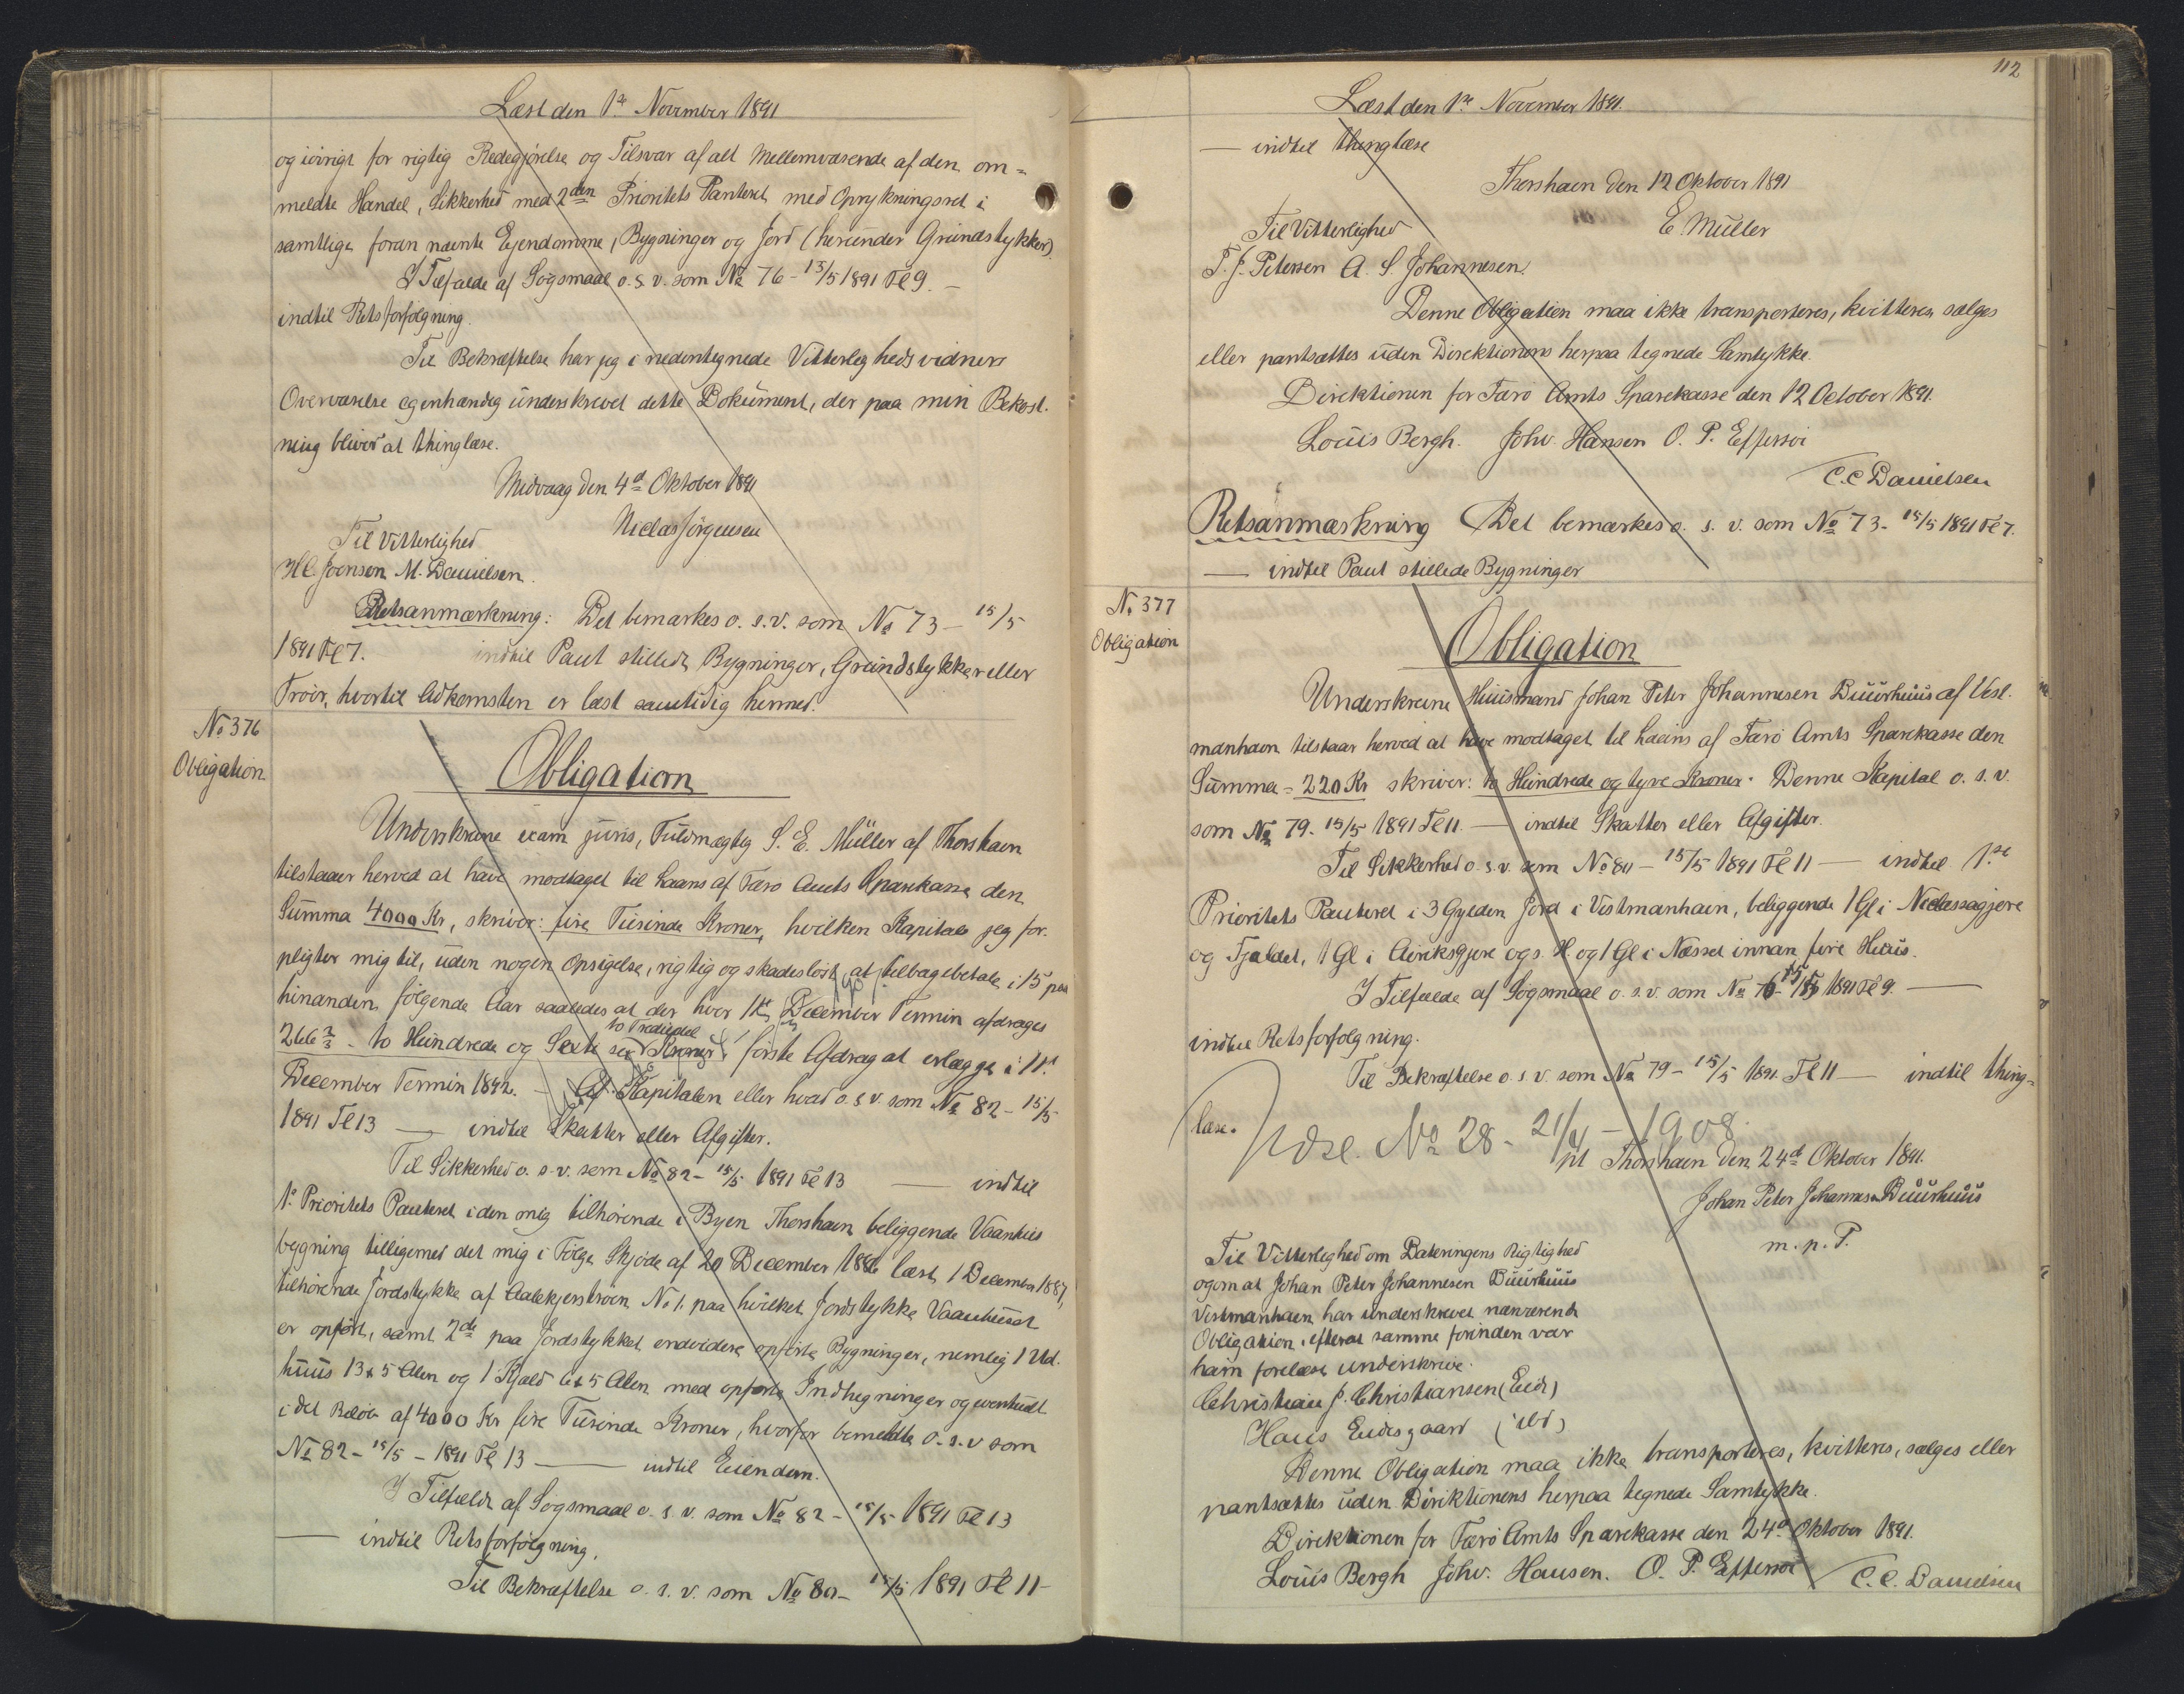 Læst den 1ste November 1891
og iövrigt for rigtig Redegjörelse og Tilsvar af alt Mellemværende af den om=
meldte Handel, Sikkerhed med 2den Prioritets Panteret med Oprykningsret i
samtlige foran nævnte Ejendomme, Bygninger og Jord (herunder Grundstykker).
I Tilfælde af Sögsmaal o. s. v. som No 76 - 15/5 1891 Fl 9. -
indtil Retsforfölgning.
Til Bekræftelse har jeg i nedentegnede Vitterlighedsvidners
Overværelse egenhændig underskrevet dette Dokument, der paa min Bekost-
ning bliver at thinglæse.
Midvaag den 4d Oktober 1891
Niclas Jörgensen
Til Vitterlighed
Joensen M. Danielsen.
Retsanmærkning: Det bemærkes o. s. v. som No 73 - 15/5
1891 Fl 7. indtil Pant stillede Bygninger, Grundstykker eller
Tröer, hvortil Adkomsten er læst samtidig hermed.
No 376
Obligation
Obligation
Underskrevne exam juris, Fuldmægtig S. E. Müller af Thorshavn
tilstaaer herved at have modtaget til Laans af Færö Amts Sparekasse den
Summa 4000 Kr, skriver: fire Tusinde Kroner, hvilken Kapital jeg for-
pligter mig til, uden nogen Opsigelse, rigtig og skadeslöst, at tilbagebetale i 15 paa
hinanden fölgende Aar saaledes at der hver 11te December Termin afdrages
266 2/3 - to Hundrede og Sexti sex to Trediedel Kroner, förste Afdrag at erlægge i 11te
December Termin 1892. - Af Kapitalen eller hvad o. s. v. som No 82 - 15/5
1891 Fl 13 — indtil Skatter eller Afgifter.
Til Sikkerhed o. s. v. som No 82 - 15/5 1891 Fl 13 — indtil
1e Prioritets Panteret i den mig tilhörende i Byen Thorshavn beliggende Vaanhus
bygning tilligemed det mig i Fölge Skjöde af 20 December 1886 læst 1 December 1887,
tilhörende Jordstykke af Aalekjerströen No 1, paa hvilket Jordstykke Vaanhuset
er opfört, samt 2de paa Jordstykket endvidere opförte Bygninger, nemlig 1 Ud-
huus 13 x 5 Alen og 1 Hjald 6 x 5 Alen med opförte Indhegninger og eventuelt
i det Belöb af 4000 Kr fire Tusinde Kroner, hvorfor bemeldte o. s. v som
No 82 - 15/5 - 1891 Fl 13 — indtil Eiendom.
I Tilfælde af Sögsmaal o. s. v. som No 82 - 15/5 1891 Fl 13
— indtil Retsforfölgning.
Til Bekræftelse o. s. v. som No 80 - 15/5 1891 Fl 11 -
112
Læst den 1ste November 1891.
— indtil thinglæse
Thorshavn den 12 Oktober 1891
E. Müller
Til Vitterlighed
T. J. Petersen A. S. Johannesen.
Denne Obligation maa ikke transporteres, kvitteres, sælges
eller pantsættes uden Direktionens herpaa tegnede Samtykke.
Direktionen for Færö Amts Sparekasse den 12 October 1891.
Louis Bergh. Johs. Hansen O. P. Effersöe
C. C. Danielsen
Retsanmærkning Det bemærkes o. s. v. som No 73 - 15/5 1891 Fl 7.
— indtil Pant stillede Bygninger
No 377
Obligation
Obligation
Underskrevne Huusmand Johan Peter Johannesen Buurhuus af Vest-
manhavn tilstaar herved at have modtaget til Laans af Færö Amts Sparekasse den
Summa = 220 Kr skriver: to Hundrede og tyve Kroner. Denne Kapital o. s. v.
som No 79 - 15/5 1891 Fl 11. — indtil Skatter eller Afgifter.
Til Sikkerhed o. s. v. som No 80 - 15/5 1891 Fl 11 — indtil 1ste
Prioritets Panteret i 3 Gylden Jord i Vestmanhavn, beliggende 1 Gl i Niclassagjere
og Fjaldet, 1 Gl i Airiksgjere ogs. H. og 1 Gl i Næsset innan fire Huus.
I Tilfælde af Sögsmaal o. s. v. som No 76 - 15/5 1891 Fl 9. —
indtil Retsforfölgning.
Til Bekræftelse o. s. v. som No 79 - 15/5 1891. Fl 11 — indtil thing=
læse.
Udsl. No 28 - 21/4 - 1908.
pt Thorshavn den 24de Oktober 1891.
Johan Peter Johannesen Buurhuus
m. p. P.
Til Vitterlighed om Dateringens Rigtighed
og om at Johan Peter Johannesen Buurhuus
Vestmanhavn har underskrevet nærværende
Obligation, efterat samme forinden var
ham forelæst underskrive.
Christian J. Christiansen (Eide)
Hans Eidisgaard (ibd)
Denne Obligation maa ikke transporteres, kvitteres, sælges eller
pantsættes uden Direktionens herpaa tegnede Samtykke.
Direktionen for Færö Amts Sparekasse den 24d Oktober 1891.
Louis Bergh Johs. Hansen. O. P. Effersöe C. C. Danielsen